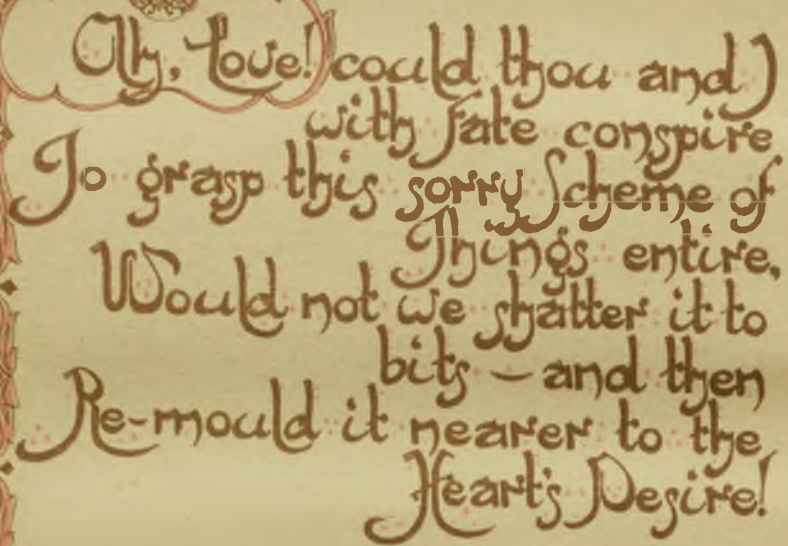 Ah, Love! could thou and I
with Fate conspire
To grasp this sorry Scheme of
Things entire,
Would not we shatter it to
bits – and then
Re-mould it nearer to the
Heart's Desire!